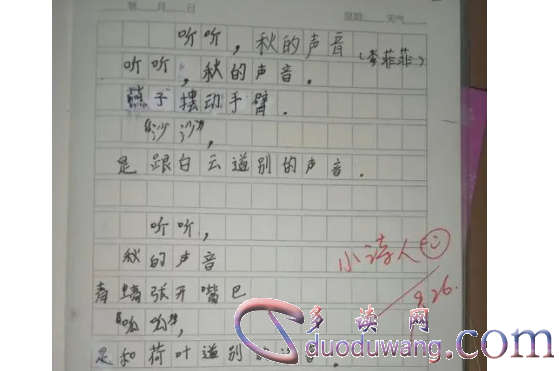 第 月 日 星期 天气
听听，秋的声音
（李菲菲）
听听，秋的声音。
燕子摆动手臂。
“沙沙”，
是跟白云道别的声音。
听听，
秋的声音
青蛙张开嘴巴
“呱呱”，
是和荷叶道别的声音。
小诗人
9.26.
多读网
duoduwang.com